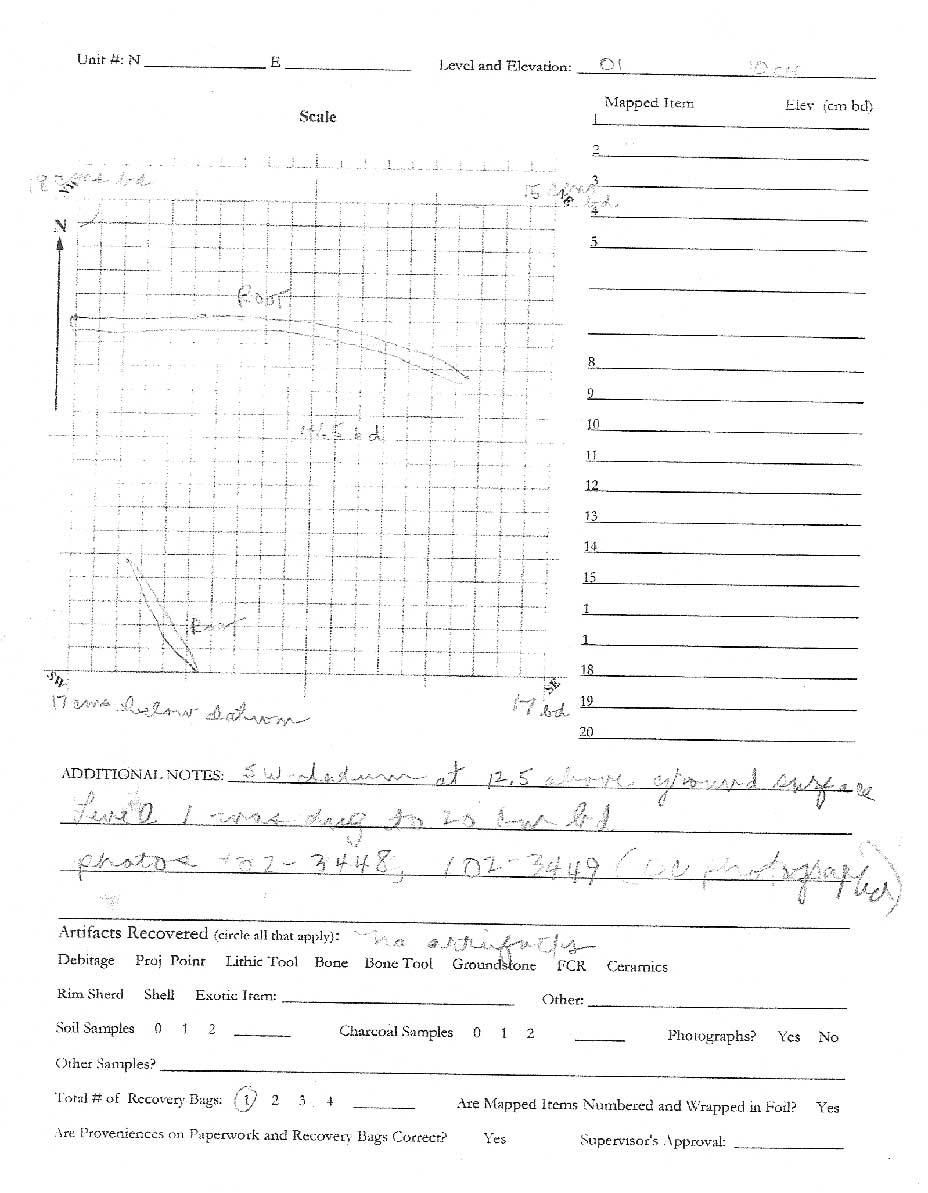 Unit #: N E Level and Elevation: 01 10 cm
Mapped Item Elev (cm bd)
Scale
1
2
3
4
5
8
9
10
11
12
13
14
15
1
1
18
19
20
cms bd
NW
15 cms bd
NE
N
Root
bd
Root
SW
SE
17 cms below datum
17 bd
ADDITIONAL NOTES: SW datum at 12.5 above ground surface
Level 1 was dug to 20 cm bd
photos 102-3448, 102-3449 ( photographed)
Artifacts Recovered (circle all that apply): no artifacts
Debitage Proj Point Lithic Tool Bone Bone Tool Groundstone FCR Ceramics
Rim Sherd Shell Exotic Item: Other:
Soil Samples 0 1 2 Charcoal Samples 0 1 2 Photographs? Yes No
Other Samples?
Total # of Recovery Bags: 1 2 3 4 Are Mapped Items Numbered and Wrapped in Foil? Yes
Are Proveniences on Paperwork and Recovery Bags Correct? Yes Supervisor's Approval: